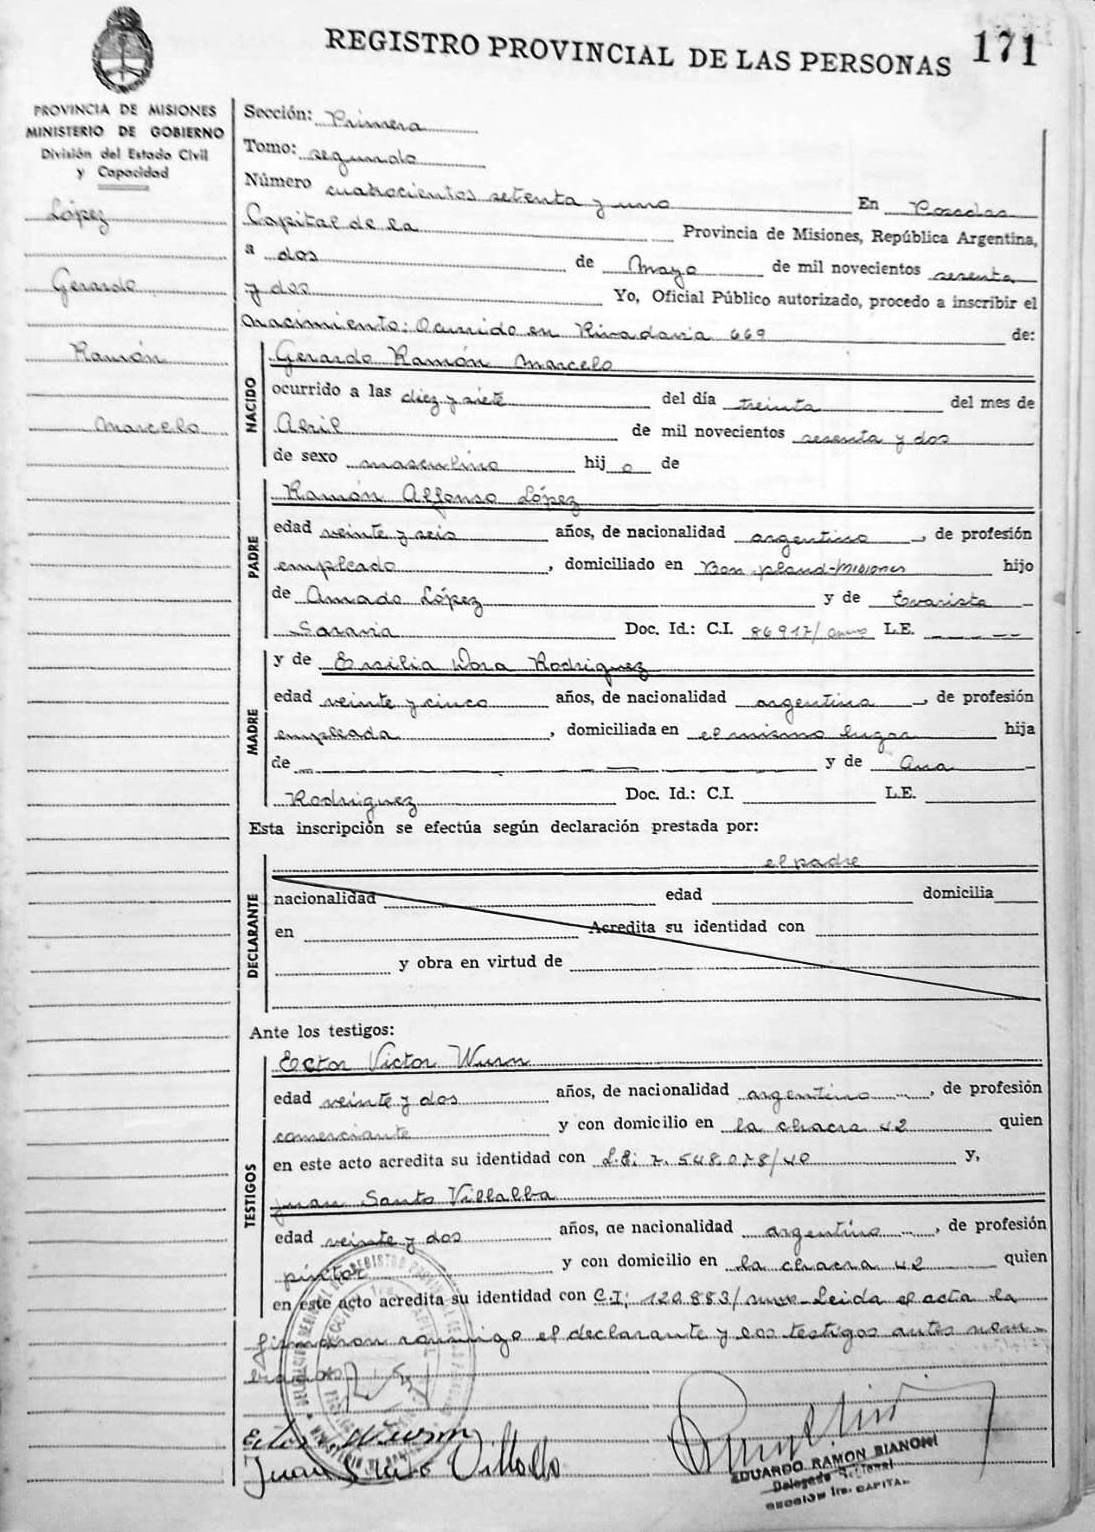 REGISTRO PROVINCIAL DE LAS PERSONAS 171
PROVINCIA DE MISIONES
MINISTERIO DE GOBIERNO
División del Estado Civil
y Capacidad
López
Gerardo
Ramón
Marcelo
Sección: Primera
Tomo: segundo
Número cuatrocientos setenta y uno En Posadas
Capital de la Provincia de Misiones, República Argentina,
a dos de Mayo de mil novecientos sesenta
y dos Yo, Oficial Público autorizado, procedo a inscribir el
nacimiento: Ocurrido en Rivadavia 669 de:
NACIDO
Gerardo Ramón Marcelo
ocurrido a las diez y siete del día treinta del mes de
Abril de mil novecientos sesenta y dos
de sexo masculino hij o de
PADRE
Ramón Alfonso López
edad veinte y seis años, de nacionalidad argentino, de profesión
empleado, domiciliado en Bon pland-Misiones hijo
de Amado López y de Evarista
Saravia Doc. Id.: C.I. 86917/ L.E.
MADRE
y de Ersilia Dora Rodriguez
edad veinte y cinco años, de nacionalidad argentina, de profesión
empleada, domiciliada en el mismo lugar hija
de y de Ana
Rodriguez Doc. Id.: C.I. L.E.
Esta inscripción se efectúa según declaración prestada por:
DECLARANTE
el padre
nacionalidad edad domicilia
en Acredita su identidad con
y obra en virtud de
Ante los testigos:
TESTIGOS
Ector Victor Wurn
edad veinte y dos años, de nacionalidad argentino, de profesión
comerciante y con domicilio en la chacra 42 quien
en este acto acredita su identidad con L.E: 7.548.078/40 y,
Juan Santo Villalba
edad veinte y dos años, de nacionalidad argentino, de profesión
pintor y con domicilio en la chacra 42 quien
en este acto acredita su identidad con C.I; 120.883/ Leida el acta la
firmaron conmigo el declarante y los testigos antes nom-
brados
Juan Santo Villalba
EDUARDO RAMON BIANCHI
Delegado
SECCION 1ra. CAPITAL